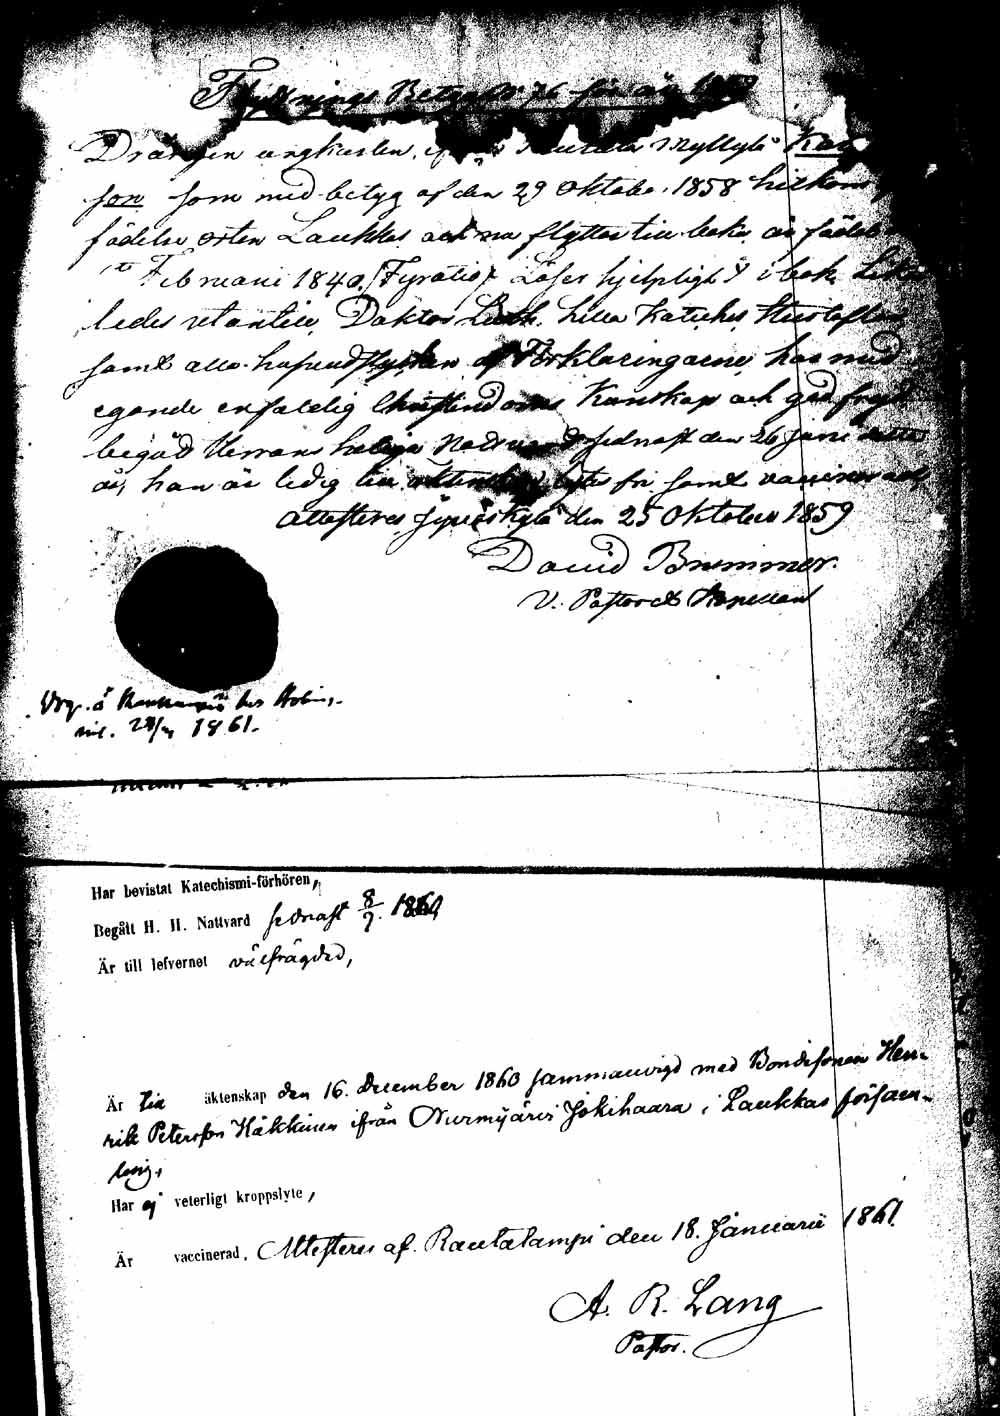 Flyttnings Betyg N: 76 för år 1859
Drängen ungkarlen, ifrån Myllylä
son som med betyg af den 29 Oktober 1858 hitkom
födelse orten Laukkas och nu flyttar till baka är född
Februarii 1840 (Fyratio) Läser hjelpligt i bok
ledes utantill, Doktor Luth. Lilla Katches
samt alla hufvudstycken af Förklaringarne, har
egande enfaldig Christendoms Kunskap och god frejd
begåd Herrans heliga Nattvard sednast den 26 Juni detta
år, han är ledig till äktenskap, lyte fri samt
Attesteras Jyväskylä den 25 Oktober 1859
David Brummer.
V. Pastor & Kapellan
1861.
Har bevistat Katechismi-förhören,
Begått H. H. Nattvard sednast 8/7. 1860,
Är till lefvernet välfrägdad,
Är till äktenskap den 16. December 1860 sammanvigd med Bondesonen Hen-
rik Petersson Häkkinen ifrån Nurmijärvi Jokihaara i Laukkas försam-
ling,
Har ej veterligt kroppslyte,
Är vaccinerad, Attesteras af. Rautalampi den 18. Januarii 1861.
A. R. Lang
Pastor.